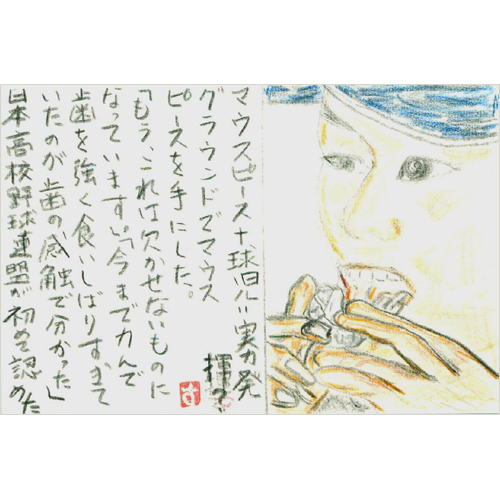 マウスピース+球児=実力発
揮
グラウンドでマウス
ピースを手にした。
「もう、これは欠かせないものに
なっています。」「今まで力んで
歯を強く食いしばりすぎて
いたのが歯の感触で分かった」
日本高校野球連盟が初めて認めた
す